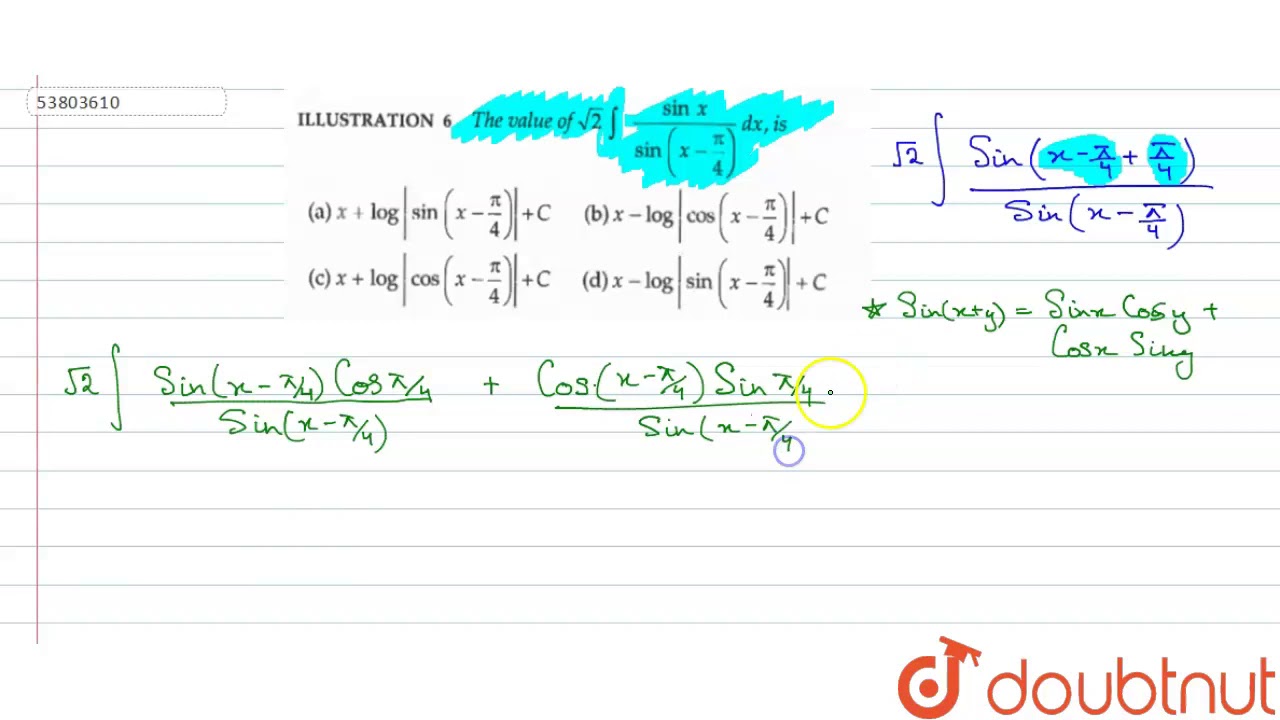 53803610
ILLUSTRATION 6 The value of √2 ∫ sin x / sin(x − π/4) dx, is
(a) x + log|sin(x − π/4)| + C (b) x − log|cos(x − π/4)| + C
(c) x + log|cos(x − π/4)| + C (d) x − log|sin(x − π/4)| + C
√2 ∫ Sin(x − π/4 + π/4) / Sin(x − π/4)
* Sin(x+y) = Sinx Cosy +
Cosx Siny
√2 ∫ Sin(x − π/4) Cos π/4 / Sin(x − π/4) + Cos(x − π/4) Sin π/4 / Sin(x − π/4
doubtnut